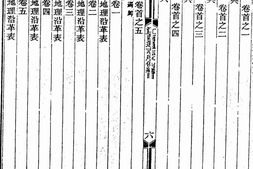 卷首之一
卷首之二
卷首之三
卷首之四
六
卷首之五
卷一
地理沿革表
卷二
地理沿革表
卷三
地理沿革表
卷四
地理沿革表
卷五
地理沿革表